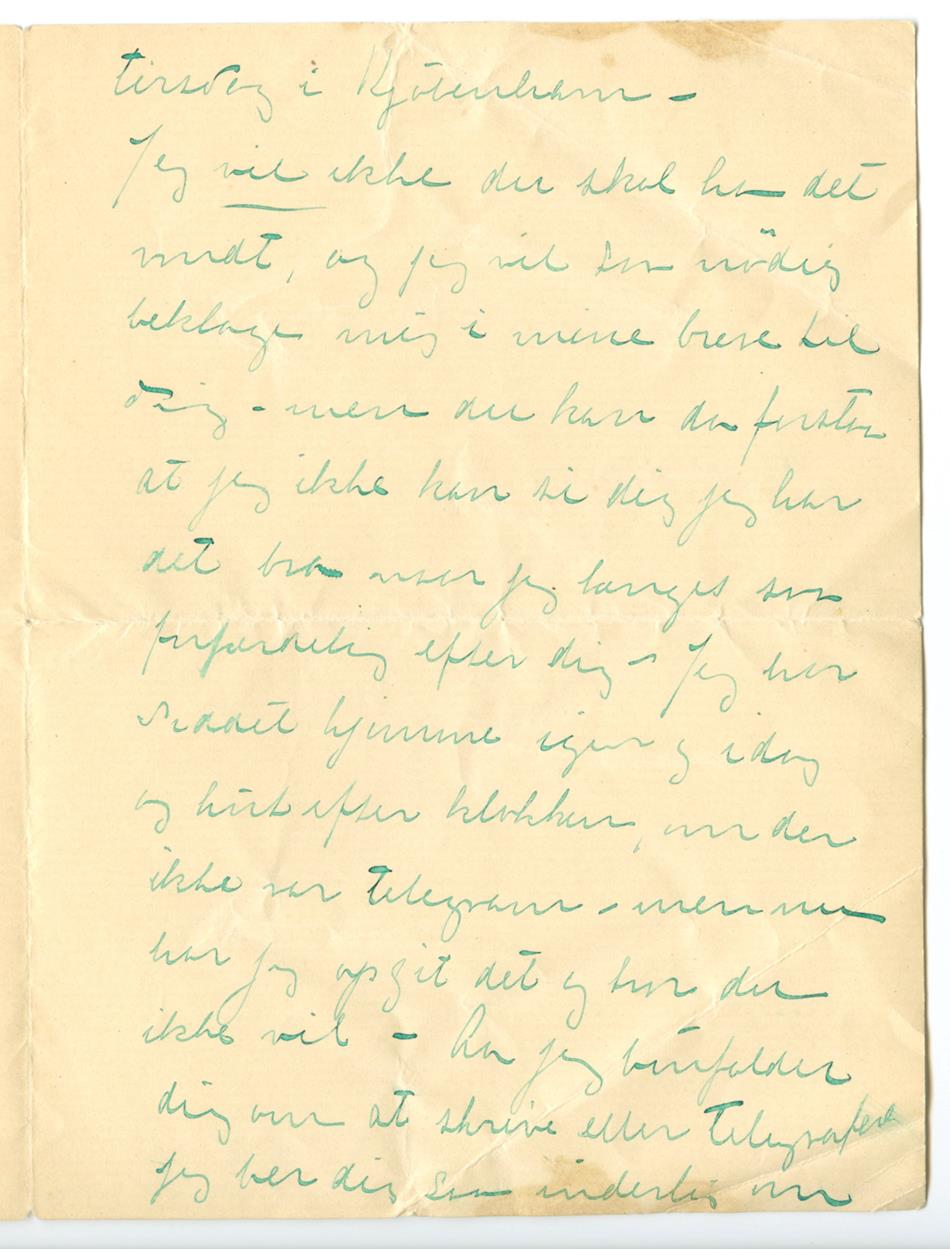 tirsdag i Kjøbenhavn –
Jeg vil ikke du skal ha det
vondt, og jeg vil saa nødig
beklage mig i mine breve til
dig – men du kan da forstaa
at jeg ikke kan si dig jeg har
det bra naar jeg længes saa
forfærdelig efter dig – Jeg har
siddet hjemme igaar og idag
og hørt efter klokken, om der
ikke var telegram – men nu
har jeg opgit det og tror du
ikke vil – Aa jeg bønfalder
dig om at skrive eller telegrafere
jeg ber dig saa inderlig om